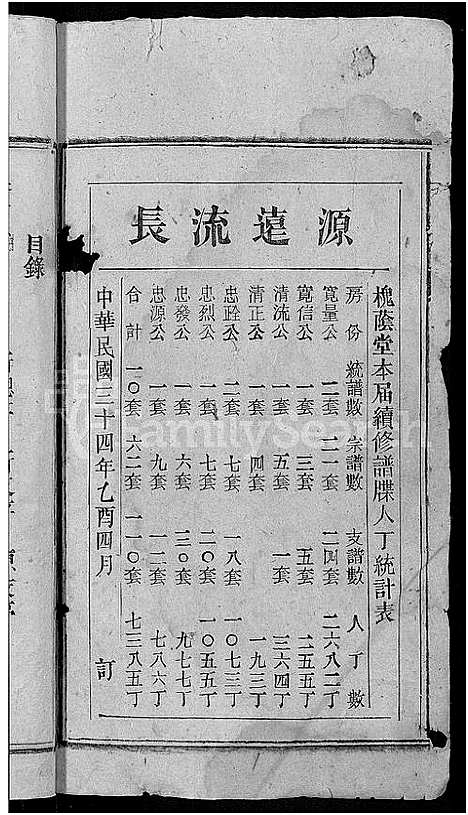 源遠流長
槐蔭堂本届續修譜牒人丁統計表
房份 統譜數 宗譜數 支譜數 人丁數
寬量公 二套 二一套 二四套 二六八二丁
寬信公 一套 三套 五套 二五五丁
清流公 一套 五套 一套 三六四丁
清正公 一套 四套 一九三丁
忠跧公 二套 七套 一八套 一〇七三丁
忠烈公 一套 七套 二〇套 一〇五五丁
忠發公 一套 六套 三〇套 九七七丁
忠源公 一套 九套 一二套 七八六丁
合計 一〇套 六二套 一一〇套 七三八五丁
中華民國三十四年乙酉四月 訂
目錄
FamilySearch